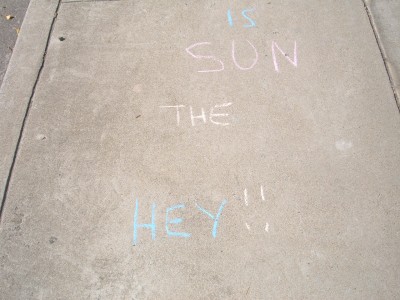 IS
SUN
THE
HEY!!